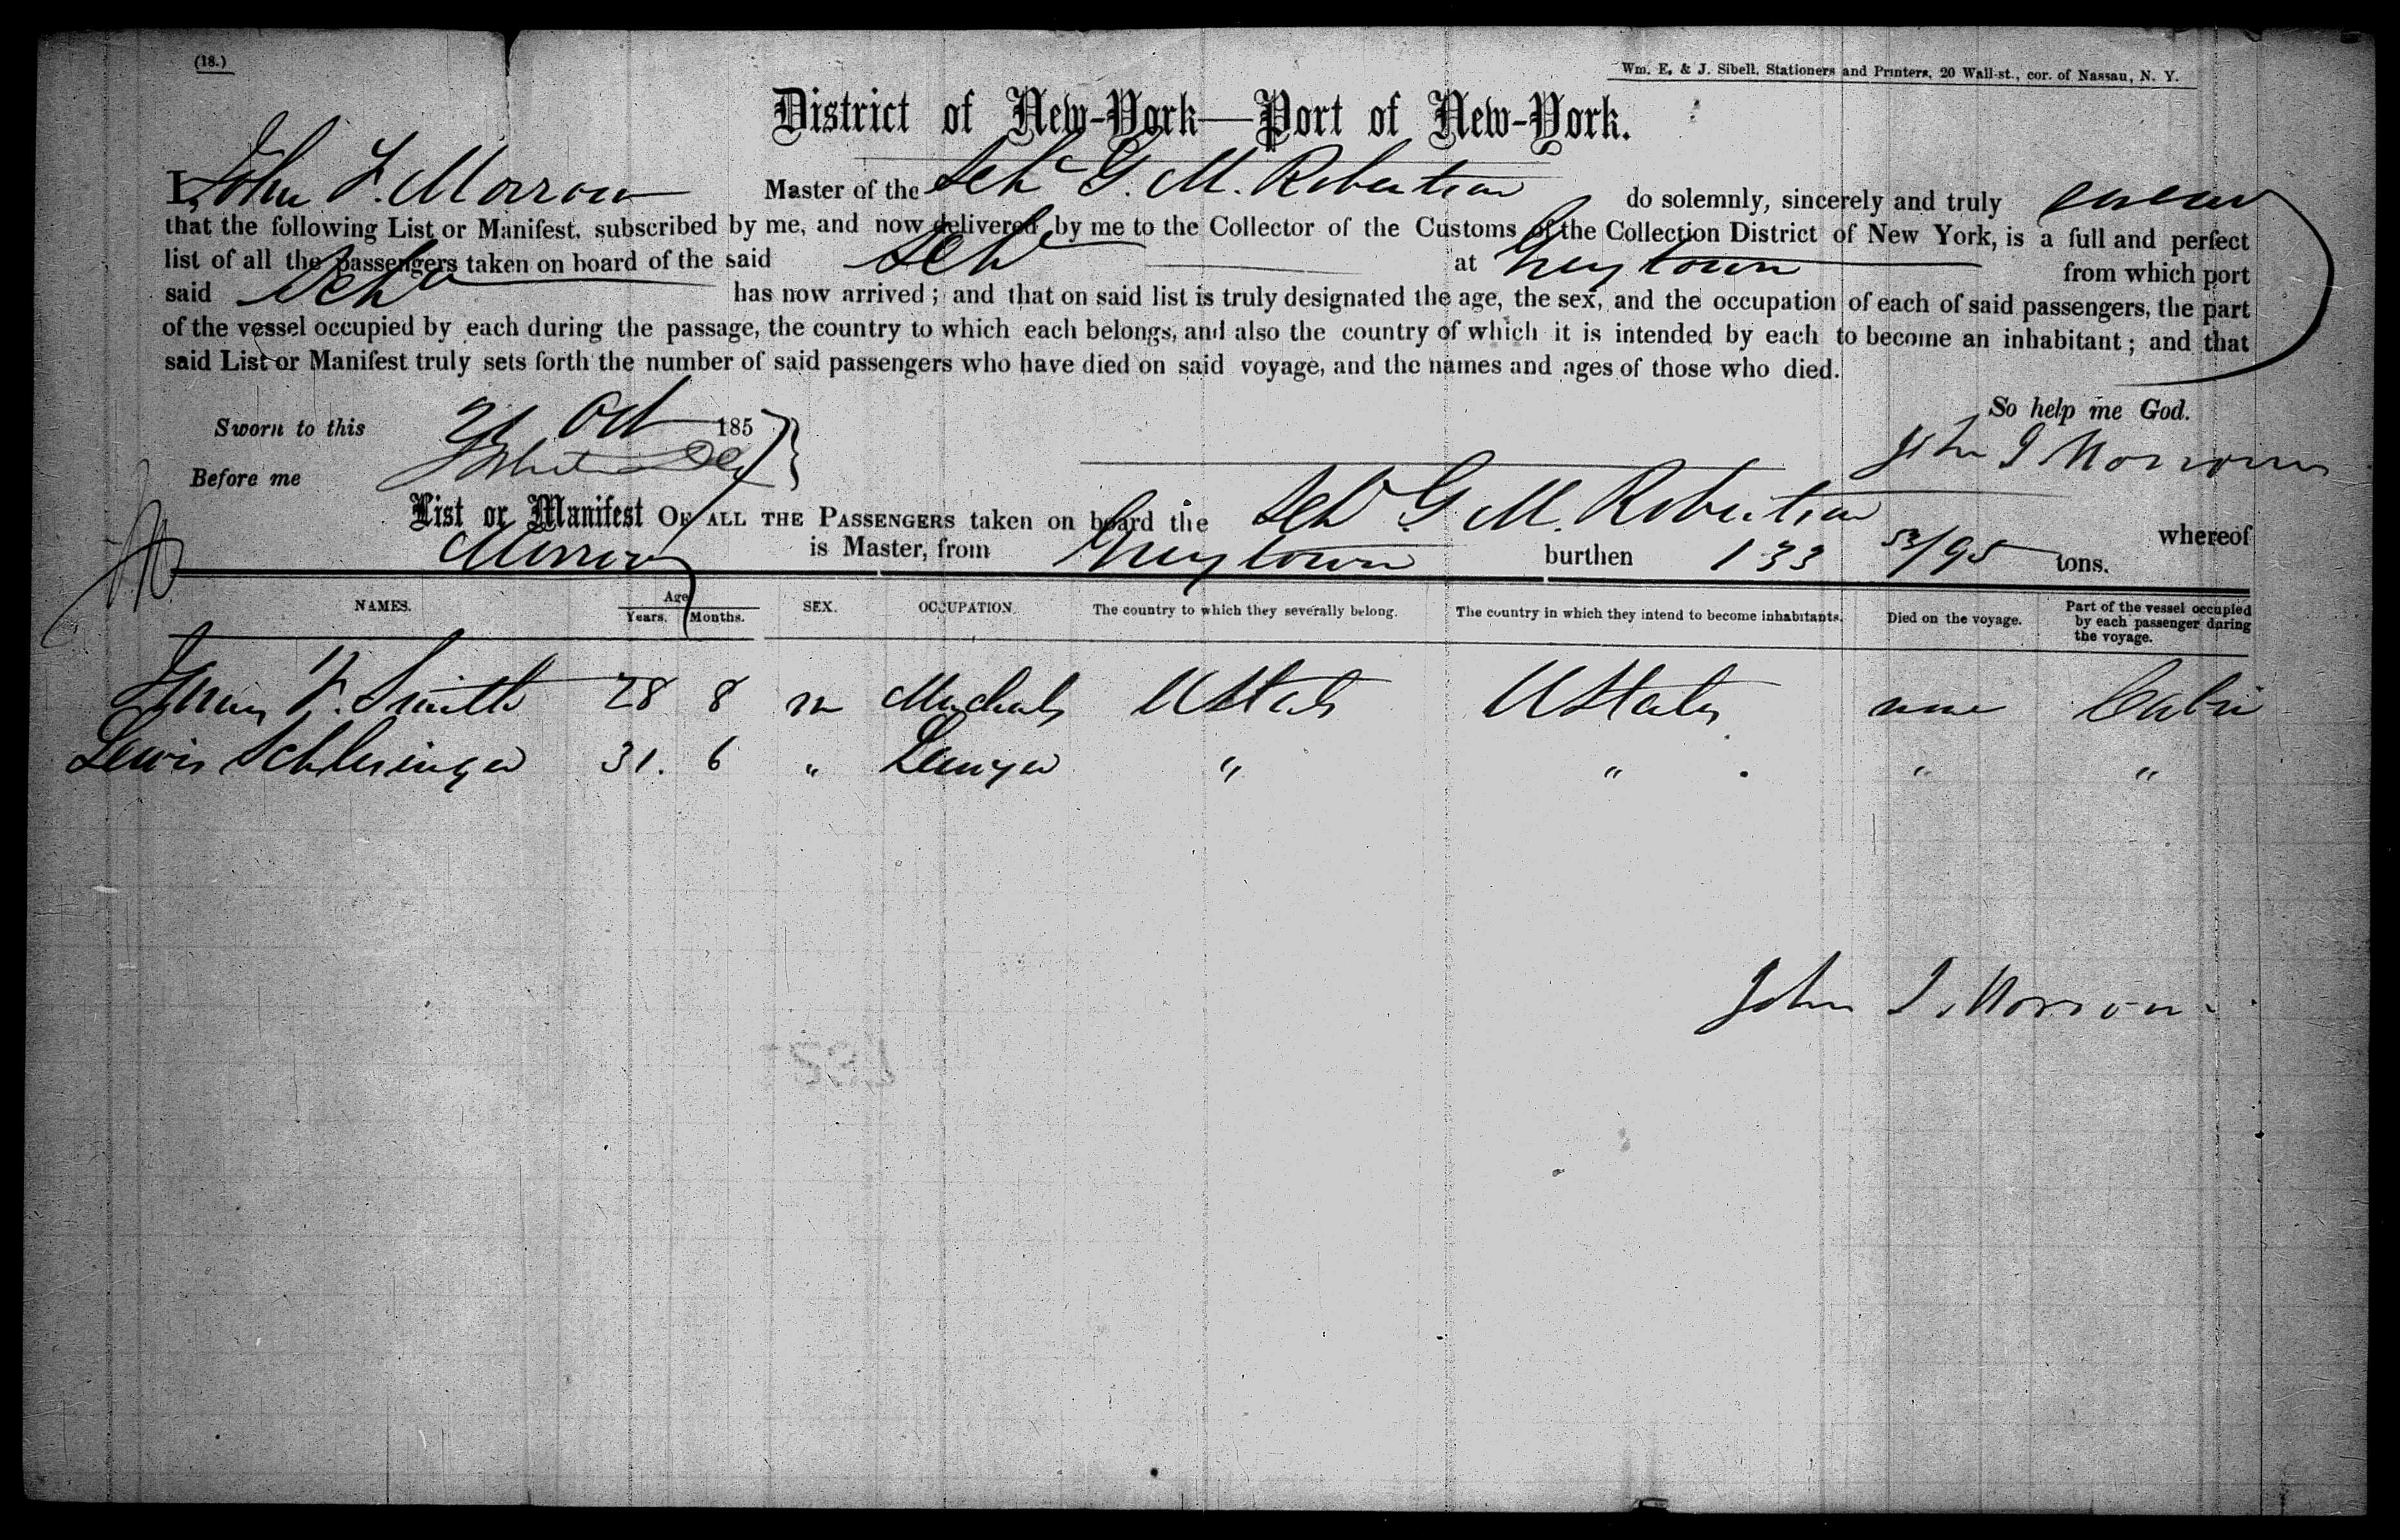 (18.)
Wm. E. & J. Sibell, Stationers and Printers, 20 Wall-st., cor. of Nassau, N. Y.
District of New-York—Port of New-York.
I, John F. Morrow Master of the Schr G. M. Robertson do solemnly, sincerely and truly swear
that the following List or Manifest, subscribed by me, and now delivered by me to the Collector of the Customs of the Collection District of New York, is a full and perfect
list of all the passengers taken on board of the said Schr at Greytown from which port
said Schr has now arrived; and that on said list is truly designated the age, the sex, and the occupation of each of said passengers, the part
of the vessel occupied by each during the passage, the country to which each belongs, and also the country of which it is intended by each to become an inhabitant; and that
said List or Manifest truly sets forth the number of said passengers who have died on said voyage, and the names and ages of those who died.
So help me God.
Sworn to this 21 Oct 1857
John J Morrow
Before me
List or Manifest OF ALL THE PASSENGERS taken on board the Schr G M. Robertson whereof
Morrow is Master, from Greytown burthen 133 53/95 tons.
NAMES. Age Years. Months. SEX. OCCUPATION. The country to which they severally belong. The country in which they intend to become inhabitants. Died on the voyage. Part of the vessel occupied by each passenger during the voyage.
Smith 28 8 m UStates UStates none Cabin
Lewis Schlesinger 31. 6 " Lawyer " " " "
John J. Morrow.